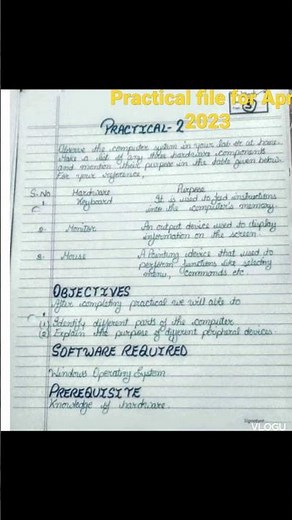 Practical file for Apr
2023
PRACTICAL-2
Observe the computer system in your lab or at home.
Make a list of any three hardware components
and mention their purpose in the table given below
For your reference.
S.No. Hardware Purpose
1 Keyboard It is used to feed instructions
into the computer's memory
2. Monitor An output device used to display
information on the screen
3. Mouse A Pointing device that used to
perform functions like selecting
menu, commands etc
OBJECTIVES
After completing practical we will able to
(1) Identify different parts of the computer
(2) Explain the purpose of different peripheral devices.
SOFTWARE REQUIRED
Windows Operating System
PREREQUISITE
Knowledge of hardware.
Signature
VLOGU